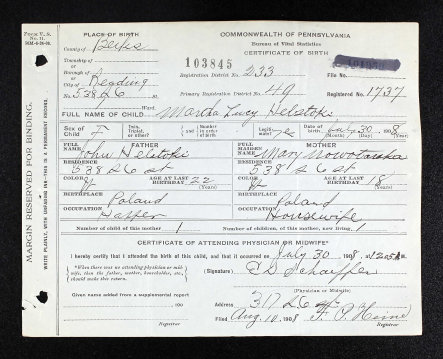 FORM V. S. No. 11.
PLACE OF BIRTH
COMMONWEALTH OF PENNSYLVANIA
County of Berks
Bureau of Vital Statistics
103845
CERTIFICATE OF BIRTH
Township of
Borough of
Registration District No. 233
File No.
City of Reading
Primary Registration District No. 49
Registered No. 1737
538 N 6 St Ward.
FULL NAME OF CHILD Martha Lucy Helstoki
Sex of Child F
Twin, Triplet, or other?
Number in order of birth
Legitimate ye
Date of birth July 30 1908
FATHER
MOTHER
FULL NAME John Helstoki
FULL MAIDEN NAME Mary
RESIDENCE 538 N 6 St
RESIDENCE 538 N 6 St
COLOR W
AGE AT LAST BIRTHDAY 22 (Years)
COLOR W
AGE AT LAST BIRTHDAY 18 (Years)
BIRTHPLACE Poland
BIRTHPLACE Poland
OCCUPATION
OCCUPATION Housewife
Number of child of this mother 1
Number of children, of this mother, now living 1
CERTIFICATE OF ATTENDING PHYSICIAN OR MIDWIFE*
I hereby certify that I attended the birth of this child, and that it occurred on July 30 1908, at
*When there was no attending physician or midwife, then the father, mother, householder, etc., should make this return.
(Signature)
(Physician or Midwife)
Given name added from a supplemental report
190
Address
Filed Aug. 10 1908
Registrar
Registrar
MARGIN RESERVED FOR BINDING.